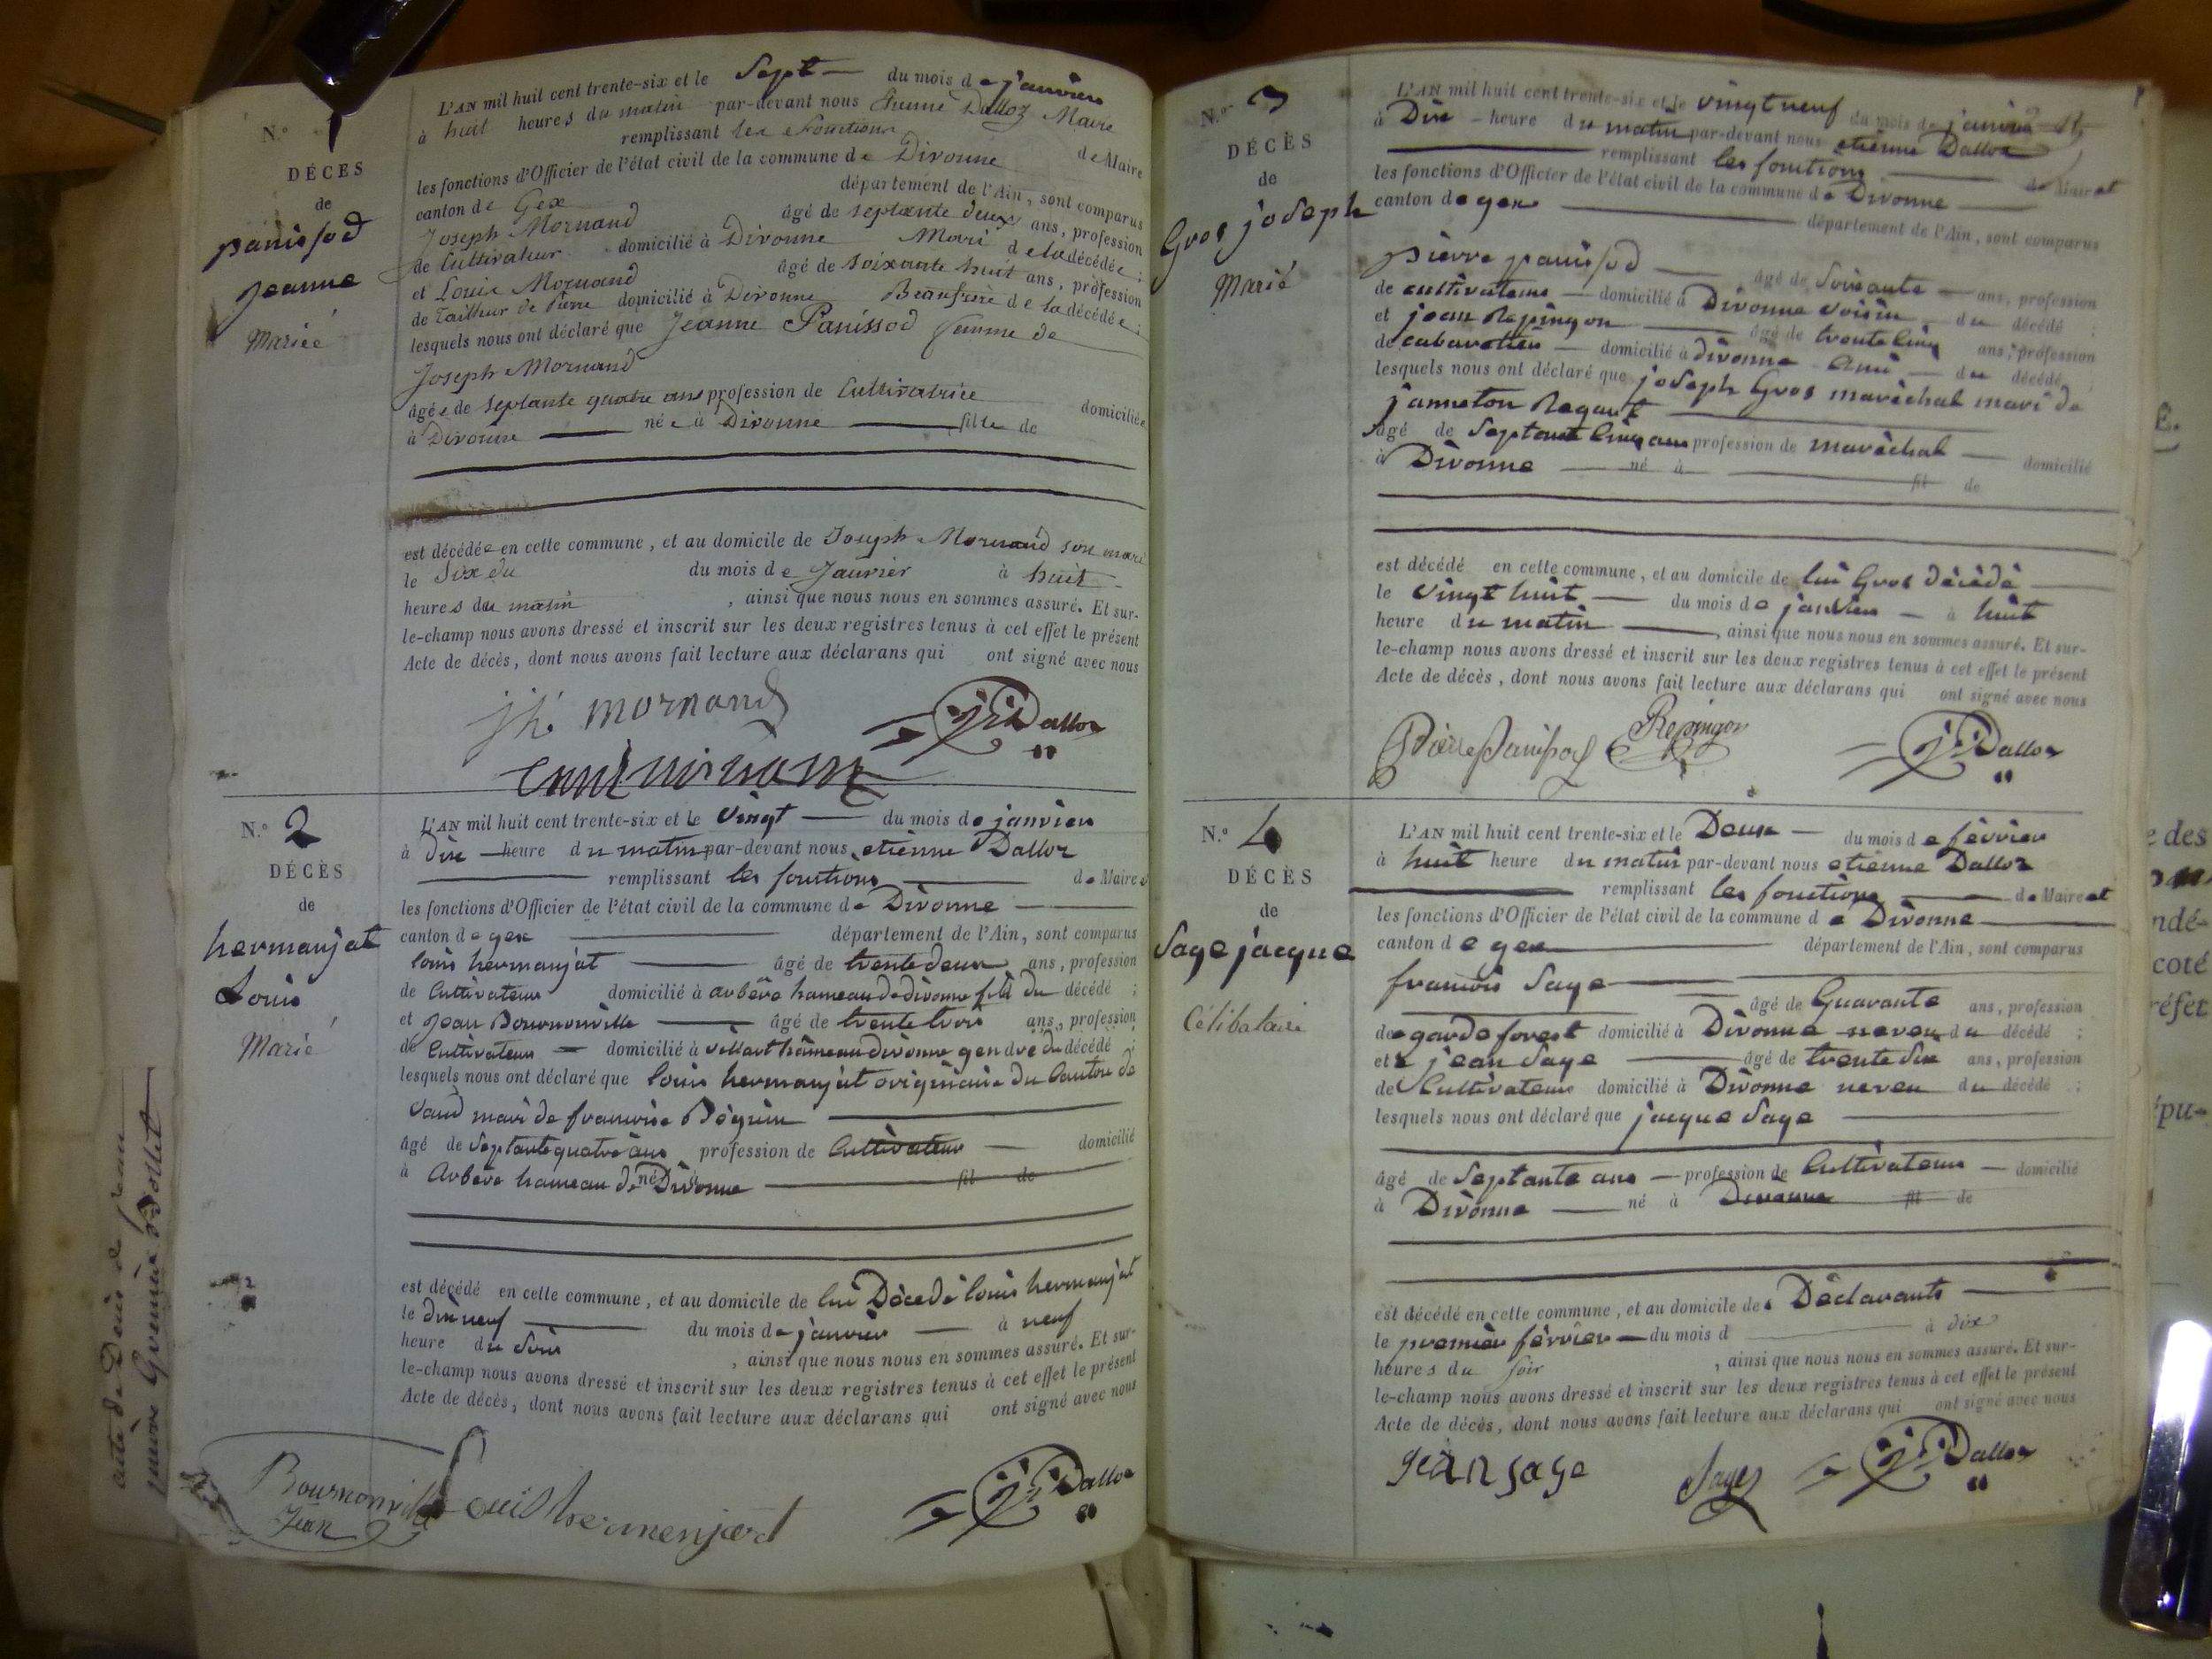 N.° 1
DÉCÈS
de
panissod
jeanne
Mariée
L'AN mil huit cent trente-six et le Sept du mois de janvier
à huit heures du matin par-devant nous Etienne Dalloz Maire
remplissant les Fonctions de Maire
les fonctions d'Officier de l'état civil de la commune de Divonne
canton de Gex département de l'Ain, sont comparus
Joseph Mornand âgé de septante deux ans, profession
de Cultivateur domicilié à Divonne Mari de la décédée ;
et Louis Mornand âgé de soixante huit ans, profession
de Tailleur de Pierre domicilié à Divonne Beaufrère de la décédée ;
lesquels nous ont déclaré que Jeanne Panissod femme de
Joseph Mornand
âgée de septante quatre ans profession de Cultivatrice domiciliée
à Divonne née à Divonne fille de
est décédée en cette commune, et au domicile de Joseph Mornand son mari
le Six du du mois de Janvier à huit
heures du matin , ainsi que nous nous en sommes assuré. Et sur-
le-champ nous avons dressé et inscrit sur les deux registres tenus à cet effet le présent
Acte de décès, dont nous avons fait lecture aux déclarans qui ont signé avec nous
jh mornand Dalloz
N.° 2
DÉCÈS
de
hermanjat
Louis
Marié
L'AN mil huit cent trente-six et le vingt du mois de janvier
à dix heure du matin par-devant nous etienne Dalloz
remplissant les fonctions de Maire
les fonctions d'Officier de l'état civil de la commune de Divonne
canton de gex département de l'Ain, sont comparus
louis hermanjat âgé de trente deux ans, profession
de Cultivateur domicilié à arbère hameau de divonne fils du décédé ;
et jean Bournonville âgé de trente trois ans, profession
de Cultivateur domicilié à villart hameau divonne gendre du décédé ;
lesquels nous ont déclaré que louis hermanjat originaire du Canton de
vaud mari de francoise Béguin
âgé de septante quatre ans profession de Cultivateur domicilié
à Arbère hameau de né Divonne fil de
est décédé en cette commune, et au domicile de lui Décédé louis hermanjat
le dixneuf du mois de janvier à neuf
heure du soir , ainsi que nous nous en sommes assuré. Et sur-
le-champ nous avons dressé et inscrit sur les deux registres tenus à cet effet le présent
Acte de décès, dont nous avons fait lecture aux déclarans qui ont signé avec nous
Bournonville
Jean
Louis hermenjat Dalloz
N.° 3
DÉCÈS
de
Gros joseph
Marié
L'AN mil huit cent trente-six et le vingt neuf du mois de janvier
à Dix heure du matin par-devant nous etienne Dalloz
remplissant les fonctions de Maire et
les fonctions d'Officier de l'état civil de la commune de Divonne
canton de gex département de l'Ain, sont comparus
pierre panissod âgé de soixante ans, profession
de cultivateur domicilié à Divonne voisin du décédé ;
et jean Repingon âgé de trente cinq ans, profession
de cabaretier domicilié à divonne ami du décédé ;
lesquels nous ont déclaré que joseph Gros maréchal mari de
janneton Regaut
âgé de Septante Cinq ans profession de maréchal domicilié
à Divonne né à fil de
est décédé en cette commune, et au domicile de lui Gros décédé
le vingt huit du mois de janvier à huit
heure du matin , ainsi que nous nous en sommes assuré. Et sur-
le-champ nous avons dressé et inscrit sur les deux registres tenus à cet effet le présent
Acte de décès, dont nous avons fait lecture aux déclarans qui ont signé avec nous
Pierre Panissod Repingon Dalloz
N.° 4
DÉCÈS
de
Sage jacque
Célibataire
L'AN mil huit cent trente-six et le Deux du mois de février
à huit heure du matin par-devant nous etienne Dalloz
remplissant les fonctions de Maire et
les fonctions d'Officier de l'état civil de la commune de Divonne
canton de gex département de l'Ain, sont comparus
francois Sage âgé de Quarante ans, profession
de garde forest domicilié à Divonne neveu du décédé ;
et jean Sage âgé de trente six ans, profession
de Cultivateur domicilié à Divonne neveu du décédé ;
lesquels nous ont déclaré que jacque Sage
âgé de Septante ans profession de Cultivateur domicilié
à Divonne né à Divonne fil de
est décédé en cette commune, et au domicile de Déclarants
le premier février du mois d à dix
heures du soir , ainsi que nous nous en sommes assuré. Et sur-
le-champ nous avons dressé et inscrit sur les deux registres tenus à cet effet le présent
Acte de décès, dont nous avons fait lecture aux déclarans qui ont signé avec nous
jean sage Sage Dalloz